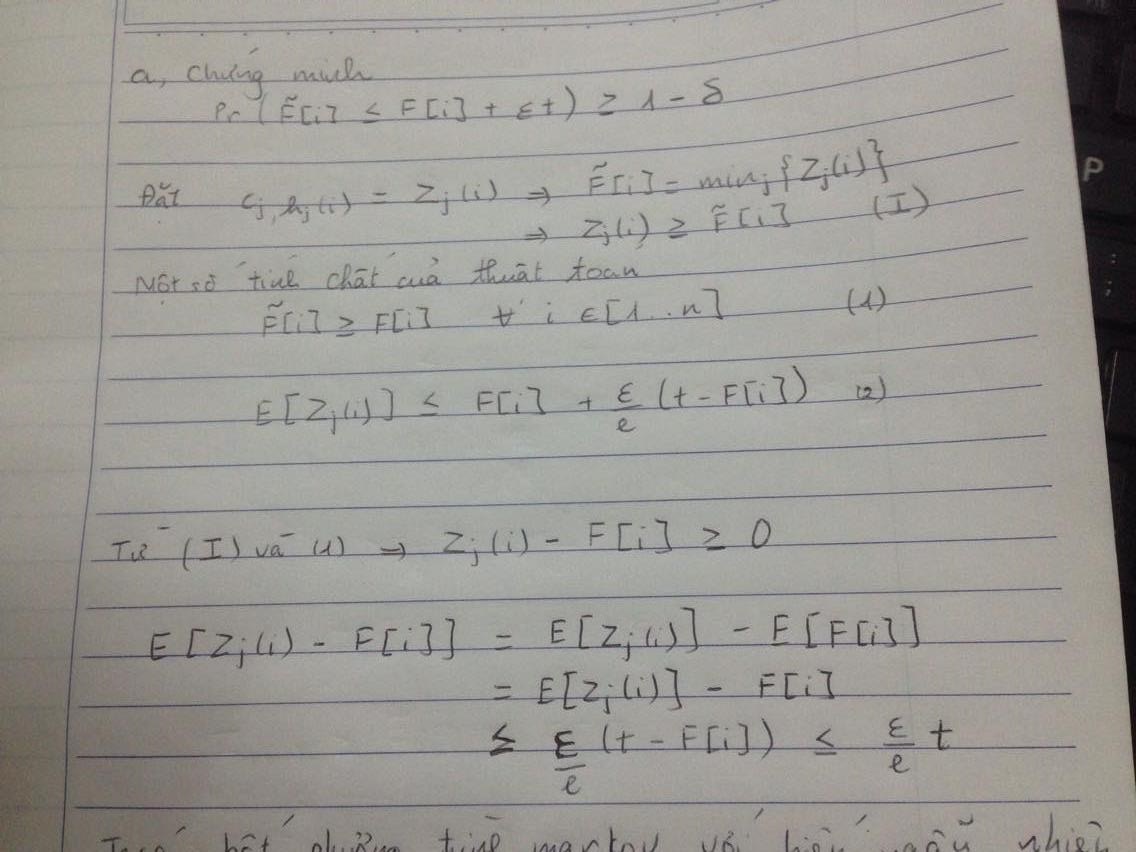 a, Chứng minh
Pr ( F̃[i] ≤ F[i] + εt ) ≥ 1 - δ
Đặt c_{j, h_j(i)} = Z_j(i) ⇒ F̃[i] = min_j {Z_j(i)}
⇒ Z_j(i) ≥ F̃[i] (I)
Một số tính chất của thuật toán
F̃[i] ≥ F[i] ∀ i ∈ [1..n] (1)
E[Z_j(i)] ≤ F[i] + ε/e (t - F[i]) (2)
Từ (I) và (1) ⇒ Z_j(i) - F[i] ≥ 0
E[Z_j(i) - F[i]] = E[Z_j(i)] - E[F[i]]
= E[Z_j(i)] - F[i]
≤ ε/e (t - F[i]) ≤ ε/e t
bất phương trình markov với biến ngẫu nhiên
P
:
;